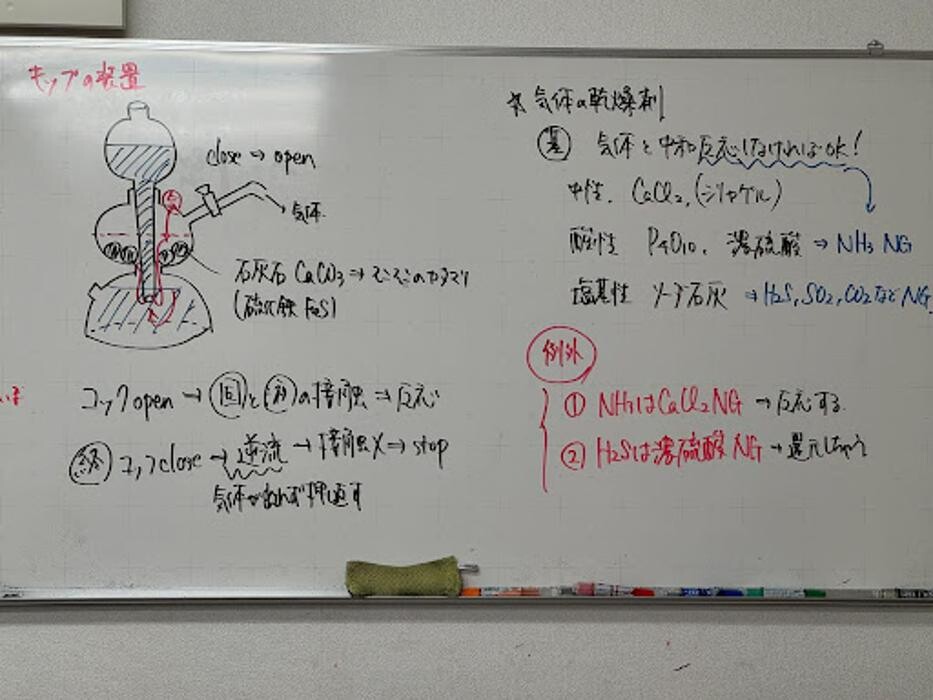 キップの装置
close → open
気体
石灰石 CaCO3 →
(硫化鉄 FeS)
コックopen → 固と の接触 ⇒ 反応
終 コックclose → 逆流 → 接触× → stop
気体があれば押し返す
☆ 気体の乾燥剤
基 気体と中和反応しなければok!
中性. CaCl2, (シリカゲル)
酸性 P4O10, 濃硫酸 ⇒ NH3 NG
塩基性 ソーダ石灰 ⇒ H2S, SO2, CO2など NG
例外
① NH3はCaCl2 NG → 反応する
② H2Sは濃硫酸 NG → 還元しちゃう